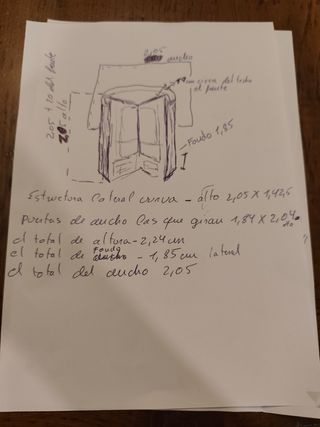 2,05 ancho
19 cm cierre del techo
el frente
2,05 + 20 del frente
2,05 alto
Fondo 1,85
Estructura lateral curva - alto 2,05 x 1,42,5
Puertas de ancho las que giran 1,84 x 2,04
el total de altura - 2,24 cm
el total de fondo - 1,85 cm lateral
el total del ancho 2,05